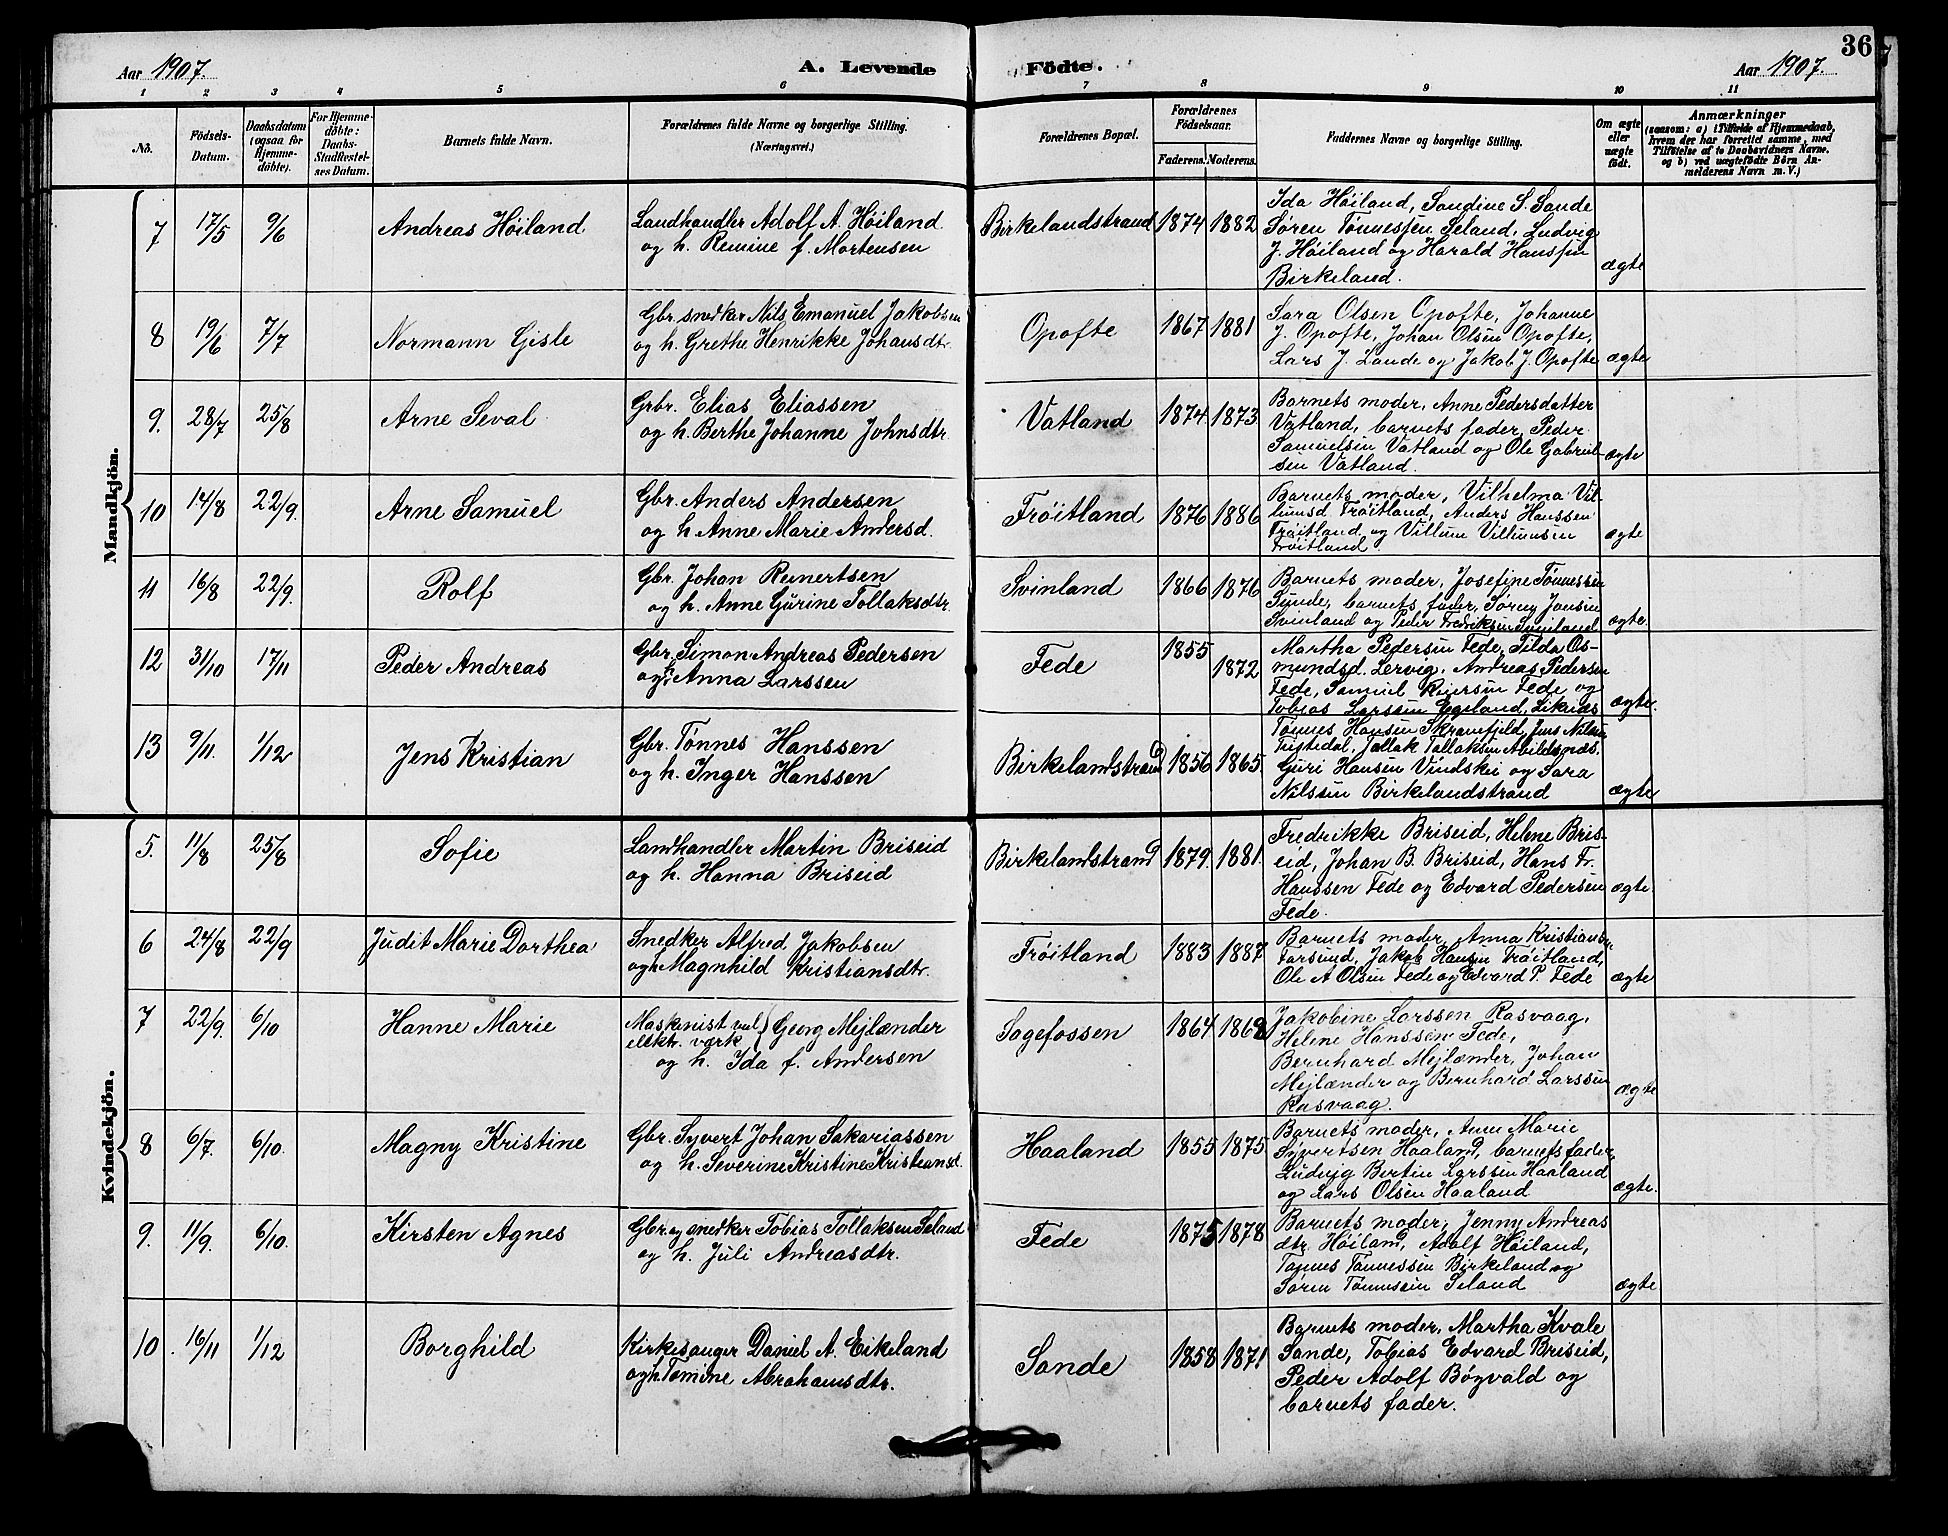 36
Aar 1907. A. Levende Födte. Aar 1907.
1 2 3 4 5 6 7 8 9 10 11
No.
Födsels-
Datum.
Daabsdatum
(ogsaa for
Hjemme-
döbte).
For Hjemme-
döbte:
Daabs-
Stadfæstel-
ses Datum.
Barnets fulde Navn.
Forældrenes fulde Navne og borgerlige Stilling.
(Næringsvei.)
Forældrenes Bopæl.
Forældrenes
Födselsaar.
Faderens. Moderens.
Faddernes Navne og borgerlige Stilling.
Om ægte
eller
uægte
födt.
Anmærkninger
(saasom: a) i Tilfælde af Hjemmedaab,
hvem der har forrettet samme, med
Tilföielse af to Daabsvidners Navne,
og b) ved uægtefödte Börn An-
melderens Navn m. V.)
Mandkjön.
7 17/5 9/6 Andreas Höiland
Landhandler Adolf A. Höiland
og h. Remine f. Mortensen
Birkelandstrand 1874 1882
Ida Höiland, Sandine S. Sande
Sören Tönnesjen Seland, Ludvig
J. Höiland og Harald Hansjen
Birkeland.
ægte
8 19/6 7/7 Normann Gisle
Gbr. snedker Nils Emanuel Jakobsen
og h. Grethe Henrikke Johansdtr.
Opofte 1867 1881
Sara Olsen Opofte, Johanne
J. Opofte, Johan Olsen Opofte,
Lars J. Lande og Jakob J. Opofte
ægte
9. 28/7 25/8 Arne Seval
Grbr. Elias Eliassen
og h. Berthe Johanne Johnsdtr.
Vatland 1874. 1873.
Barnets moder, Anne Pedersdatter
Vatland, barnets fader, Peder
Samuelsen Vatland og Ole Gabriel-
sen Vatland.
ægte
10 14/8 22/9. Arne Samuel
Gbr. Anders Andersen
og h. Anne Marie Andersd.
Fröitland 1876 1886
Barnets moder, Vilhelma Vil-
lumsd Fröitland, Anders Hanssen
Fröitland og Villum Villumsen
Fröitland
ægte
11 16/8 22/9. Rolf
Gbr. Johan Reinertsen
og h. Anne Gurine Tollaksdtr.
Svinland 1866 1876
Barnets moder, Josefine Tönnessen
Sunde, barnets fader, Sören Jansen
Svinland og Peder Fredriksen Svinland
ægte.
12 31/10 17/11 Peder Andreas
Gbr. Simon Andreas Pedersen
og h. Anna Larssen
Fede 1855 1872
Martha Pedersen Fede, Tilda Os-
mundsd. Lervig, Andreas Pedersen
Fede, Samuel Reiersen Fede og
Tobias Larssen Egeland, Liknæs
ægte.
13 9/11. 1/12 Jens Kristian
Gbr. Tönnes Hanssen
og h. Inger Hanssen
Birkelandstrand 1856 1865.
Tönnes Hansen Skranefjeld, Jens Nilsen
Tollak Tollaksen Abildsnæs.
Guri Hansen Vindskei og Sara
Nilssen Birkelandstrand
ægte
Kvindekjön.
5. 11/8 25/8 Sofie
Landhandler Martin Briseid
og h. Hanna Briseid
Birkelandstrand 1879. 1881.
Fredrikke Briseid, Helene Bris-
eid, Johan B. Briseid, Hans Fr.
Hanssen Fede og Edvard Pedersen
Fede.
ægte.
6 24/8 22/9 Judit Marie Dorthea
Snedker Alfred Jakobsen
og h. Magnhild Kristiansdtr.
Fröitland 1883 1887
Barnets moder, Anna Kristiansen
Farsund, Jakob Hansen Fröitland,
Ole A Olsen Fede og Edvard P. Fede
ægte
7 22/9. 6/10 Hanne Marie
Maskinist ved
elektr. værk } Georg Mejlænder
og h. Ida f. Andersen
Sagefossen 1864.
Jakobine Larssen Rasvaag,
Helene Hanssen Fede,
Bernhard Mejlænder, Johan
Mejlænder og Bernhard Larssen
Rasvaag.
ægte
8 6/7. 6/10. Magny Kristine
Gbr. Syvert Johan Sakariassen
og h. Severine Kristine Kristiansd.
Haaland 1855 1875
Barnets moder, Anna Marie
Syvertsen Haaland, barnets fader,
Ludvig Bertin Larssen Haaland
og Lars Olsen Haaland
ægte.
9. 11/9. 6/10. Kirsten Agnes
Gbr. og snedker Tobias Tollaksen Seland
og h. Juli Andreasdtr.
Fede 1875 1878
Barnets moder, Jenny Andreas
dtr. Höiland, Adolf Höiland,
Tönnes Tönnessen Birkeland og
Sören Tönnessen Seland
ægte
10 16/11 1/12 Borghild
Kirkesanger Daniel A. Eikeland
og h. Tomine Abrahamsdtr.
Sande 1858 1871
Barnets moder, Martha Kvale
Sande, Tobias Edvard Briseid,
Peder Adolf Bögvald og
barnets fader.